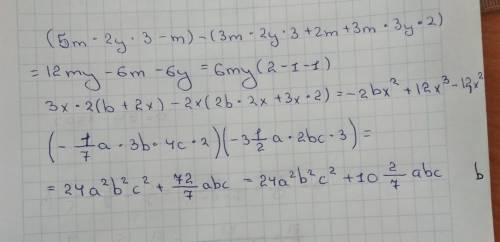 (5m · 2y · 3 - m) - (3m · 2y · 3 + 2m + 3m · 3y · 2)
= 12my - 6m - 6y = 6my(2-1-1)
3x · 2(b + 2x) - 2x(2b · 2x + 3x · 2) = -2bx² + 12x³ - 12x²
(- 1/7 a · 3b · 4c · 2)(-3 1/2 a · 2bc · 3) =
= 24a²b²c² + 72/7 abc = 24a²b²c² + 10 2/7 abc b